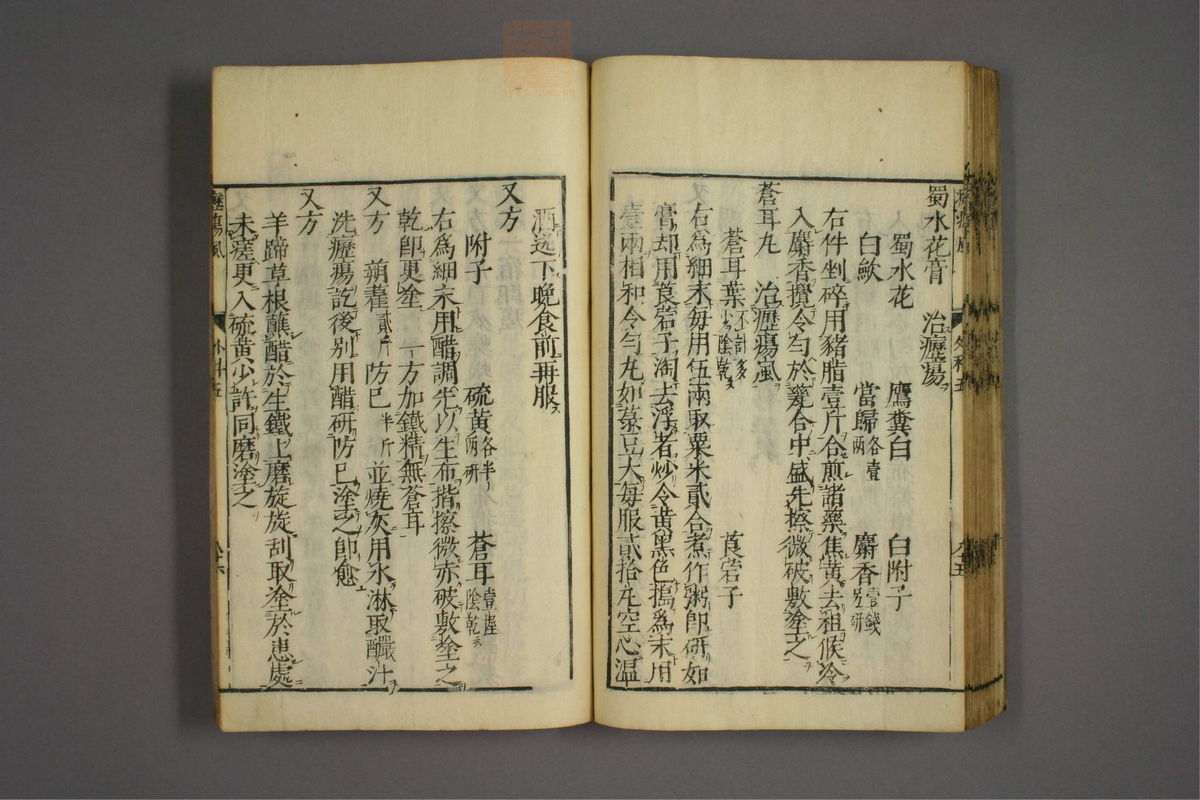 蜀水花膏 治癧瘍
蜀水花 鷹糞白 白附子
白歛 當歸各壹兩 麝香壹錢別研
右件剉碎用豬脂壹斤合煎諸藥焦黃去柤候冷
入麝香攪令勻於甕合中盛先擦微破敷塗之
蒼耳丸 治癧瘍風
蒼耳葉不計多少陰乾 莨菪子
右為細末每用伍兩取粟米貳合煮作粥即研如
膏却用莨菪子淘去浮者炒令黃黑色擣爲末用
壹兩相和令勻丸如菉豆大每服貳拾丸空心温
酒送下晚食前再服
又方
附子 硫黃各半兩研 蒼耳壹陸陰乾
右爲細末用醋調先以生布揩擦微赤破敷塗之
乾卽更塗 一方加鐵精無蒼耳
又方 蒴藋貳斤 防已半斤 並燒灰用水淋取釅汁
洗癧瘍訖後別用醋研防已塗之卽愈
又方
羊蹄草根蘸醋於生鐵上磨旋旋刮取塗於患處
未瘥更入硫黃少許同磨塗之
癧瘍風 外科五 八十六